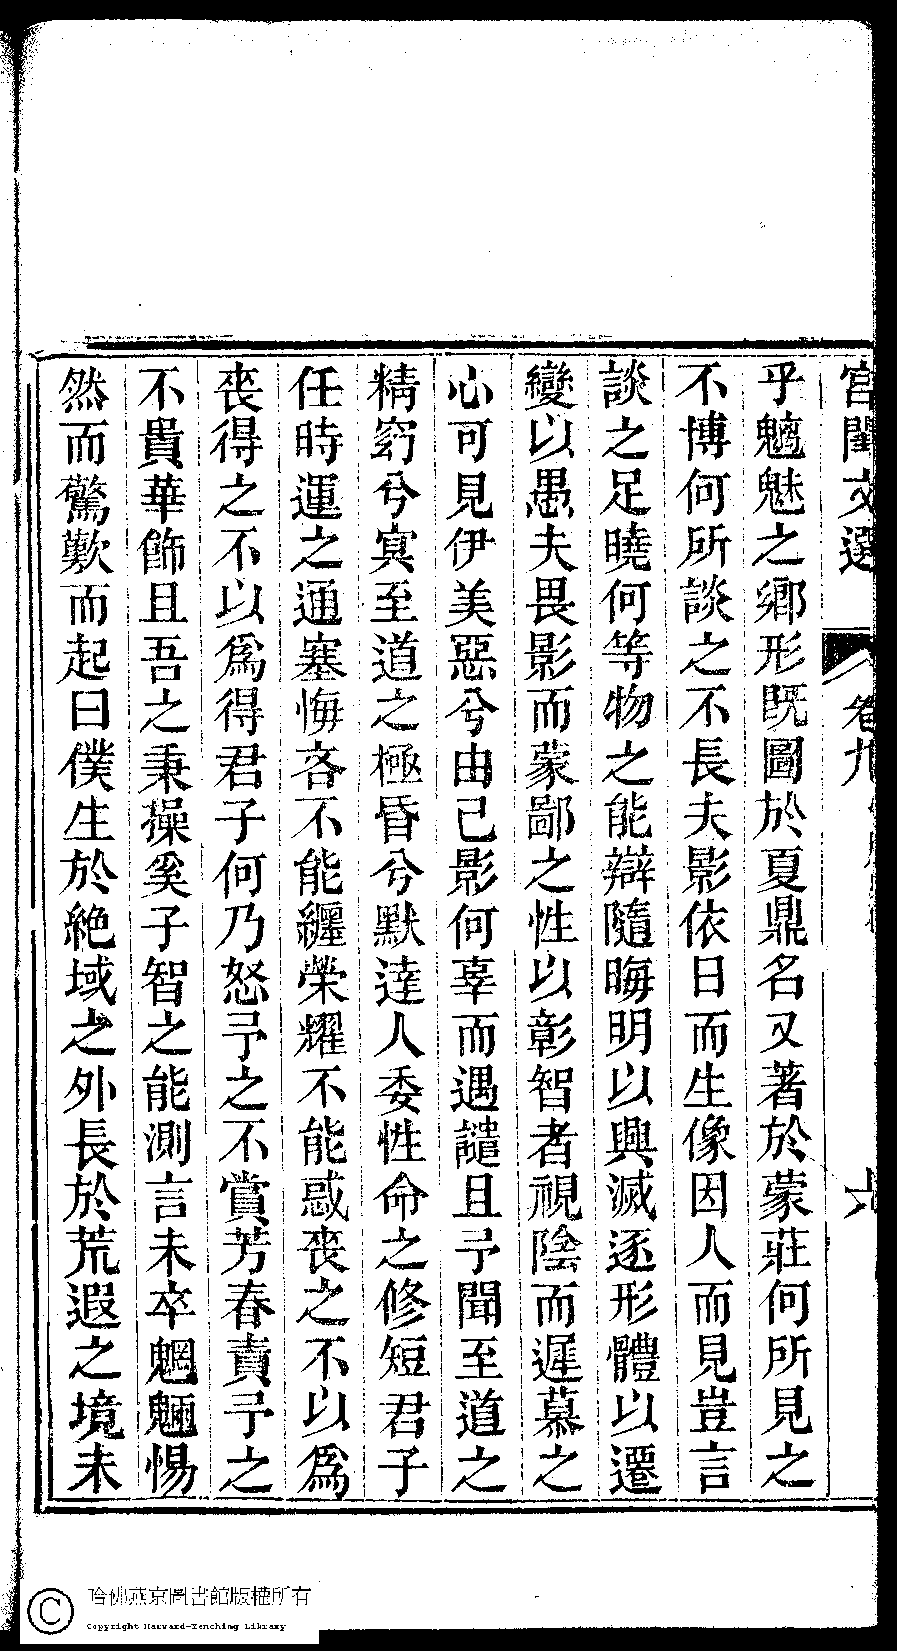 宮閨文選
卷九
六
乎魑魅之鄉形既圖於夏鼎名又著於蒙莊何所見之
不博何所談之不長夫影依日而生像因人而見豈言
談之足曉何等物之能辯隨晦明以興滅逐形體以遷
變以愚夫畏影而蒙鄙之性以彰智者視陰而遲慕之
心可見伊美惡兮由己影何辜而遇譴且予聞至道之
精窈兮冥至道之極昏兮默達人委性命之修短君子
任時運之通塞悔吝不能纏榮耀不能惑喪之不以爲
喪得之不以爲得君子何乃怒予之不賞芳春責予之
不貴華飾且吾之秉操奚子智之能測言未卒魍魎惕
然而驚歎而起曰僕生於絶域之外長於荒遐之境未
哈佛燕京圖書館版權所有
Copyright Harvard-Yenching Library